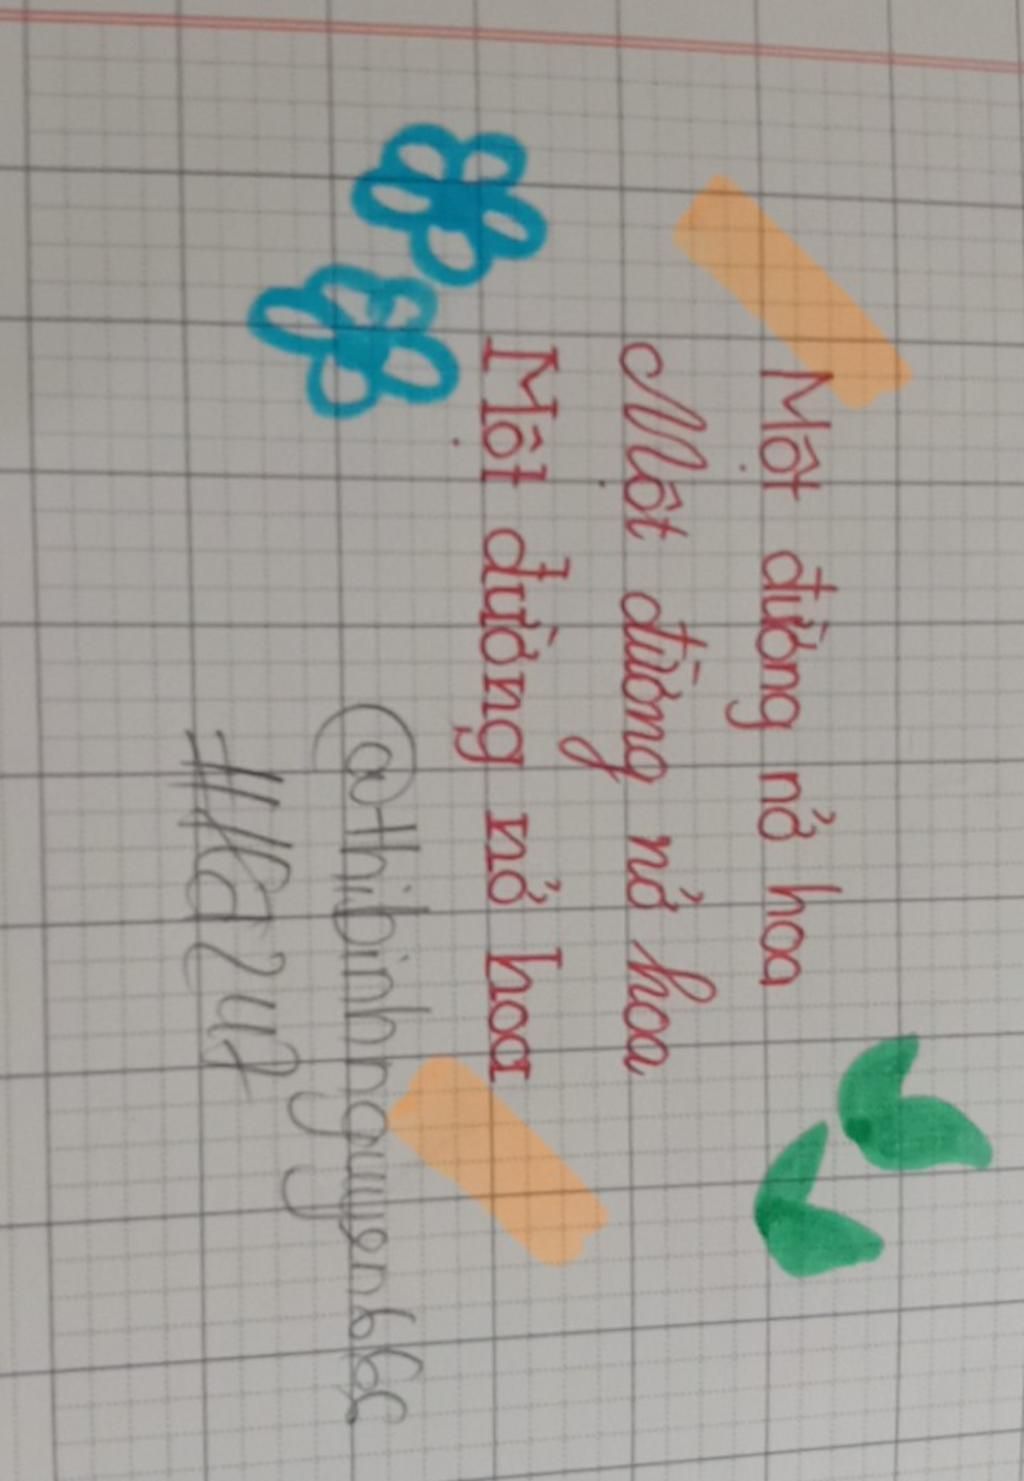 Một đường nở hoa
Một đường nở hoa
Một đường nở hoa
@thibinhnguyen666